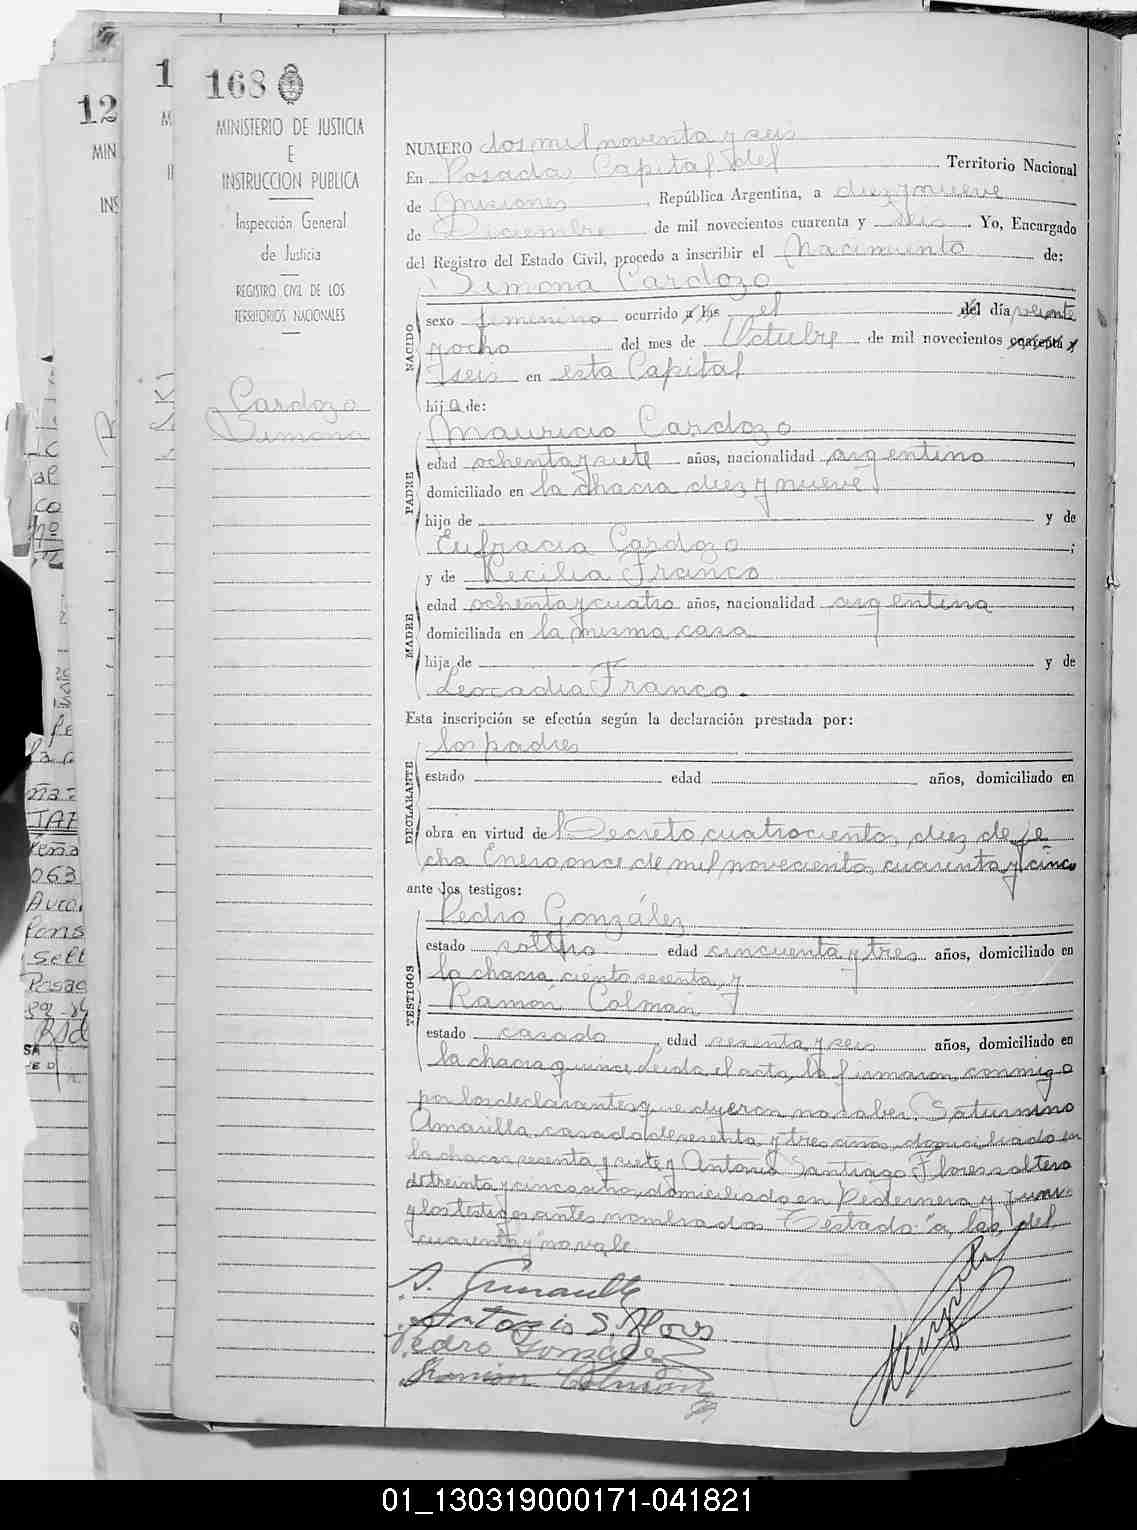 168
MINISTERIO DE JUSTICIA
E
INSTRUCCION PUBLICA
Inspección General
de Justicia
REGISTRO CIVIL DE LOS
TERRITORIOS NACIONALES
Cardozo
Simona
12
MIN
INS
NUMERO dos mil noventa y seis
En Posadas Capital del Territorio Nacional
de Misiones, República Argentina, a diez y nueve
de Diciembre de mil novecientos cuarenta y seis. Yo, Encargado
del Registro del Estado Civil, procedo a inscribir el Nacimiento de:
Simona Cardozo
NACIDO
sexo femenino ocurrido a las el del día veinte
y ocho del mes de Octubre de mil novecientos cuarenta y
seis en esta Capital
hij a de:
PADRE
Mauricio Cardozo
edad ochenta y siete años, nacionalidad argentino,
domiciliado en la chacra diez y nueve
hijo de y de
Eufracia Cardozo;
MADRE
y de Cecilia Franco
edad ochenta y cuatro años, nacionalidad argentina,
domiciliada en la misma casa
hija de y de
Leocadia Franco.
Esta inscripción se efectúa según la declaración prestada por:
DECLARANTE
los padres
estado edad años, domiciliado en
obra en virtud del Decreto cuatrocientos diez de fe
cha Enero once de mil novecientos cuarenta y cinco
ante los testigos:
TESTIGOS
Pedro González
estado soltero edad cincuenta y tres años, domiciliado en
la chacra ciento sesenta y
Ramón Colman
estado casado, edad sesenta y seis años, domiciliado en
la chacra quince. Leida el acta, la firmaron conmigo
por los declarantes que dijeron no saber, Saturnino
Amarilla, casado de sesenta y tres años, domiciliado en
la chacra sesenta y siete y Antonio Santiago Flores soltero
de treinta y cinco años, domiciliado en Pedernera y
y los testigos antes nombrados. Testado: a, las, del,
cuarenta y no vale
Antonio S. Flores
Pedro Gonzalez
Ramon Colman
063
01_130319000171-041821